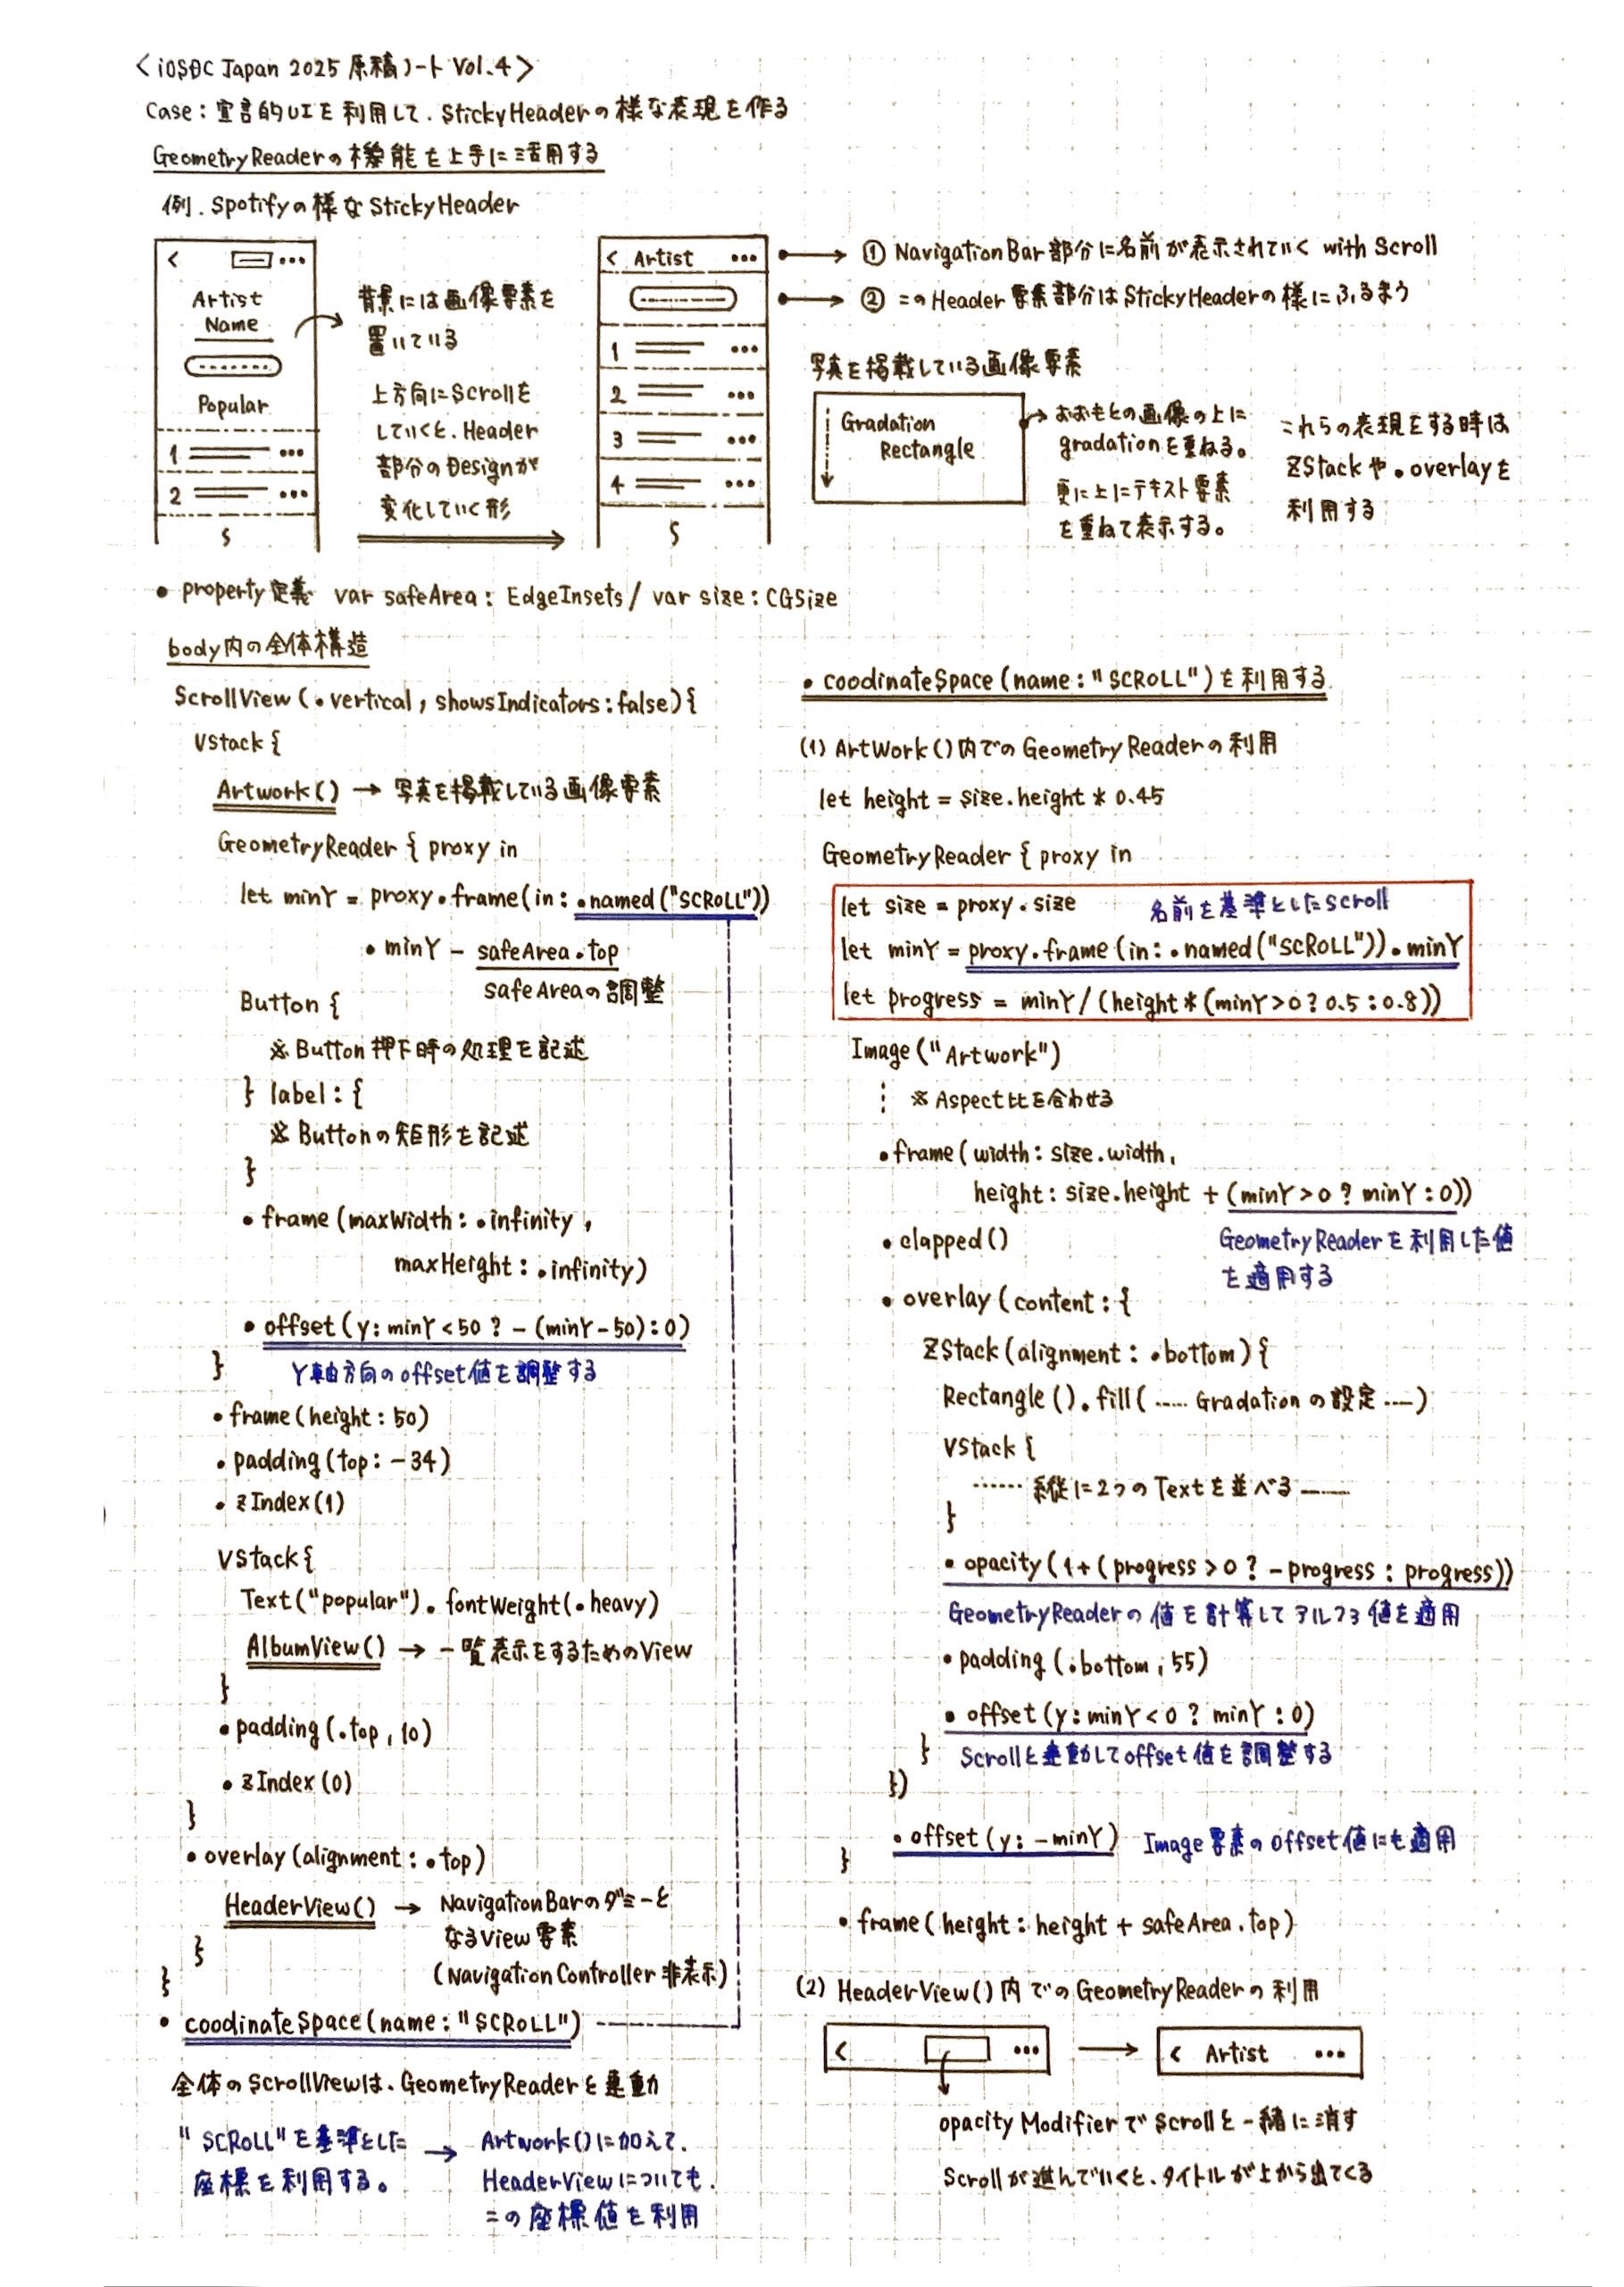 <iOSDC Japan 2025 原稿ノート Vol.4>
Case: 宣言的UIを利用して、StickyHeaderの様な表現を作る
GeometryReaderの機能を上手に活用する
例. Spotifyの様なStickyHeader
<
Artist
Name
Popular
1
2
背景には画像要素を
置いている
上方向にScrollを
していくと、Header
部分のDesignが
変化していく形
< Artist
1
2
3
4
① NavigationBar部分に名前が表示されていく with Scroll
② このHeader要素部分はStickyHeaderの様にふるまう
写真を掲載している画像要素
Gradation
Rectangle
おおもとの画像の上に
gradationを重ねる。
更に上にテキスト要素
を重ねて表示する。
これらの表現をする時は
ZStackや.overlayを
利用する
• property定義 var safeArea: EdgeInsets / var size: CGSize
body内の全体構造
ScrollView(.vertical, showsIndicators: false){
VStack{
Artwork() → 写真を掲載している画像要素
GeometryReader { proxy in
let minY = proxy.frame(in: .named("SCROLL"))
.minY - safeArea.top
safeAreaの調整
Button {
※ Button押下時の処理を記述
} label: {
※ Buttonの矩形を記述
}
.frame(maxWidth: .infinity,
maxHeight: .infinity)
.offset(y: minY < 50 ? -(minY-50) : 0)
} Y軸方向のoffset値を調整する
.frame(height: 50)
.padding(top: -34)
.zIndex(1)
VStack{
Text("popular").fontWeight(.heavy)
AlbumView() → 一覧表示をするためのView
}
.padding(.top, 10)
.zIndex(0)
}
.overlay(alignment: .top)
HeaderView() → NavigationBarのダミーと
なるView要素
(NavigationController非表示)
}
}
.coodinateSpace(name: "SCROLL")
全体のScrollViewは、GeometryReaderと連動
"SCROLL"を基準とした
座標を利用する。
→ Artwork()に加えて、
HeaderViewについても、
この座標値を利用
• coodinateSpace(name: "SCROLL")を利用する
(1) ArtWork()内でのGeometryReaderの利用
let height = size.height * 0.45
GeometryReader { proxy in
let size = proxy.size 名前を基準としたScroll
let minY = proxy.frame(in: .named("SCROLL")).minY
let progress = minY / (height * (minY > 0 ? 0.5 : 0.8))
Image("Artwork")
⋮ ※ Aspect比を合わせる
.frame(width: size.width,
height: size.height + (minY > 0 ? minY : 0))
.clapped() GeometryReaderを利用した値
を適用する
.overlay(content: {
ZStack(alignment: .bottom){
Rectangle().fill( ..... Gradationの設定 ..... )
VStack{
...... 縦に2つのTextを並べる ......
}
.opacity(1 + (progress > 0 ? -progress : progress))
GeometryReaderの値を計算してアルファ値を適用
.padding(.bottom, 55)
.offset(y: minY < 0 ? minY : 0)
} Scrollと連動してoffset値を調整する
})
.offset(y: -minY) Image要素のoffset値にも適用
}
.frame(height: height + safeArea.top)
(2) HeaderView()内でのGeometryReaderの利用
<
→ < Artist
opacity ModifierでScrollと一緒に消す
Scrollが進んでいくと、タイトルが上から出てくる